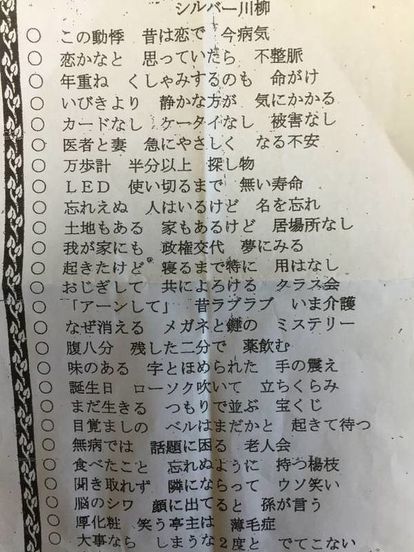 シルバー川柳
○ この動悸 昔は恋で 今病気
○ 恋かなと 思っていたら 不整脈
○ 年重ね くしゃみするのも 命がけ
○ いびきより 静かな方が 気にかかる
○ カードなし ケータイなし 被害なし
○ 医者と妻 急にやさしく なる不安
○ 万歩計 半分以上 探し物
○ LED 使い切るまで 無い寿命
○ 忘れえぬ 人はいるけど 名を忘れ
○ 土地もある 家もあるけど 居場所なし
○ 我が家にも 政権交代 夢にみる
○ 起きたけど 寝るまで特に 用はなし
○ おじぎして 共によろける クラス会
○ 「アーンして」 昔ラブラブ いま介護
○ なぜ消える メガネと鍵の ミステリー
○ 腹八分 残した二分で 薬飲む
○ 味のある 字とほめられた 手の震え
○ 誕生日 ローソク吹いて 立ちくらみ
○ まだ生きる つもりで並ぶ 宝くじ
○ 目覚ましの ベルはまだかと 起きて待つ
○ 無病では 話題に困る 老人会
○ 食べたこと 忘れぬように 持つ楊枝
○ 聞き取れず 隣にならって ウソ笑い
○ 脳のシワ 顔に出てると 孫が言う
○ 厚化粧 笑う亭主は 薄毛症
○ 大事なら しまうな2度と でてこない